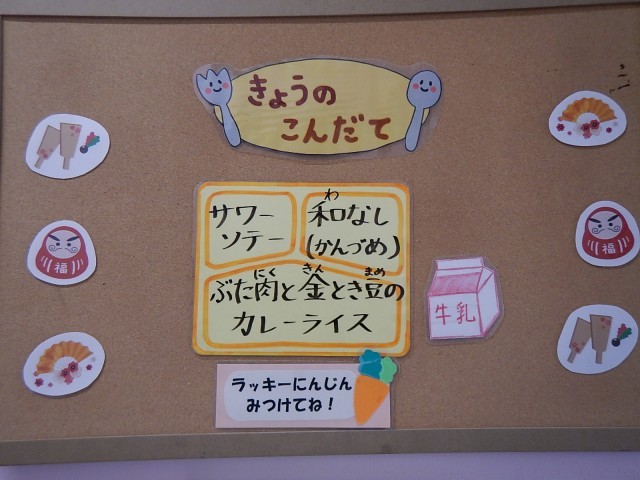 きょうの
こんだて
サワー
ソテー
和なし
わ
(かんづめ)
ぶた肉と金とき豆の
にく きん まめ
カレーライス
牛乳
ラッキーにんじん
みつけてね!
福
福